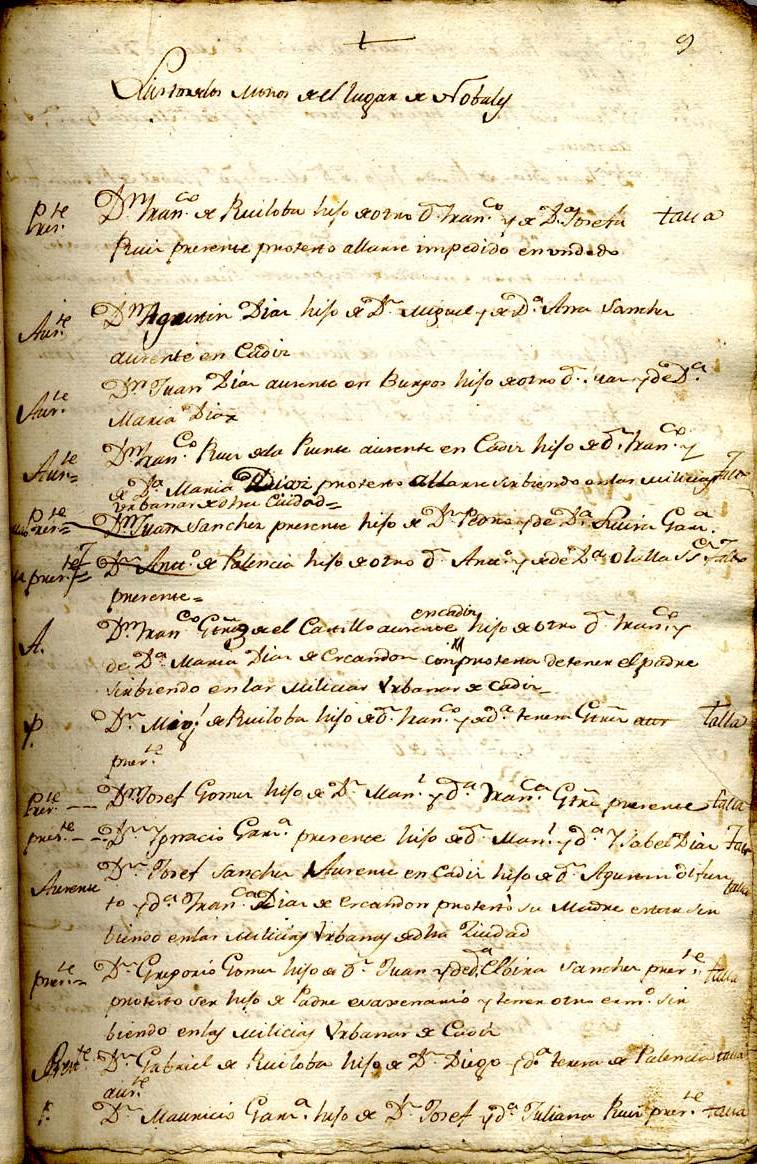 9
Lista de los Mozos de el lugar de Nobales
Pres.te Dn Fran.co de Ruiloba hijo de otro d.n Fran.co y de D.a Josefa talla
Ruiz presente protesto allarse impedido en un dedo
Aus.te Dn Agustin Diaz hijo de D.n Miguel y de D.a Ana Sanchez
ausente en Cadiz
Aus.te Dn Juan Diaz ausente en Burgos hijo de otro d.n Juan y de D.a
Maria Diaz
Aus.te Dn Fran.co Ruiz de la Puente ausente en Cadiz hijo de d.n Fran.co y
de D.a Maria Diaz protesto allarse sirbiendo en las milicias
Urbanas de dha Ciudad=
Pres.te Dn Juan Sanchez presente hijo de D.n Pedro y de D.a Garc.a
pres.te Dn Ant.o de Palencia hijo de otro d.n Ant.o y de D.a
presente=
A. Dn Fran.co Gtrrz de el Castillo ausente en cadiz hijo de otro d.n Fran.co y
de D.a Maria Diaz de Escandon con protesta de tener el padre
sirbiendo en las Milicias Urbanas de Cadiz
P. Dn Mig.l de Ruiloba hijo de d.n Fran.co y de d.a teresa Gtrrz aus talla
pres.te
Pres.te -- Dn Josef Gomez hijo de D.n Man.l y d.a Fran.ca Gtrrz presente talla
pres.te -- Dn Ygnacio Garc.a presente hijo de d.n Man.l y d.a Ysabel Diaz talla
Ausente Dn Josef Sanchez Ausente en Cadiz hijo de d.n Agustin difun talla
to y d.a Fran.ca Diaz de Escandon protestó su Madre estar sir
biendo en las Milicias Urbanas de dha Ziudad
pres.te= Dn Gregorio Gomez hijo de d.n Juan y de d.a Elbira Sanchez pres.te talla
protesto ser hijo de Padre sexaxenario y tener otro erm.o sir
biendo en las Milicias Urbanas de Cadiz
Dn Gabriel de Ruiloba hijo de D.n Diego y d.a teresa de Palencia talla
aus.te
P. Dn Mauricio Garc.a hijo de D.n Josef y d.a Juliana Ruiz pres.te talla